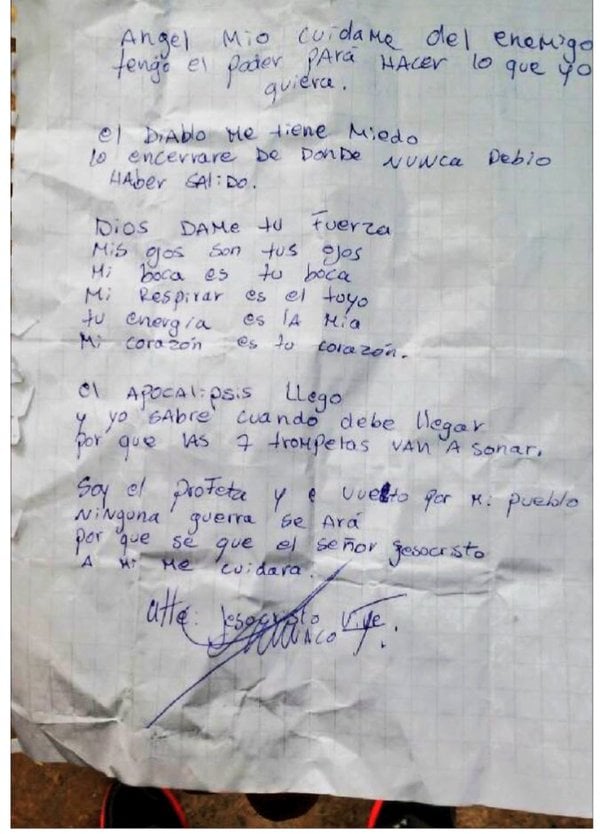 Angel Mio cuidame del enemigo
tengo el poder PArá HAcer lo que yo
quiera.
el DiAblo Me tiene Miedo
lo encerrare De DonDe NUNCA Debio
HAber SAliDo.
Dios DAMe tu Fuerza
Mis ojos son tus ojos
Mi boca es tu boca
Mi Respirar es el tuyo
tu energía es lA MiA
Mi corazón es tu corazón.
el APOCAlipsis Llego
y yo SAbre cuando debe llegar
por que lAS 7 troMpetas VAN A sonar.
Soy el profeta y e vuelto por Mi pueblo
Ninguna guerra se Ará
por que se que el señor jesocristo
A Mi Me cuidara.
Atte: jesocristo Vive.